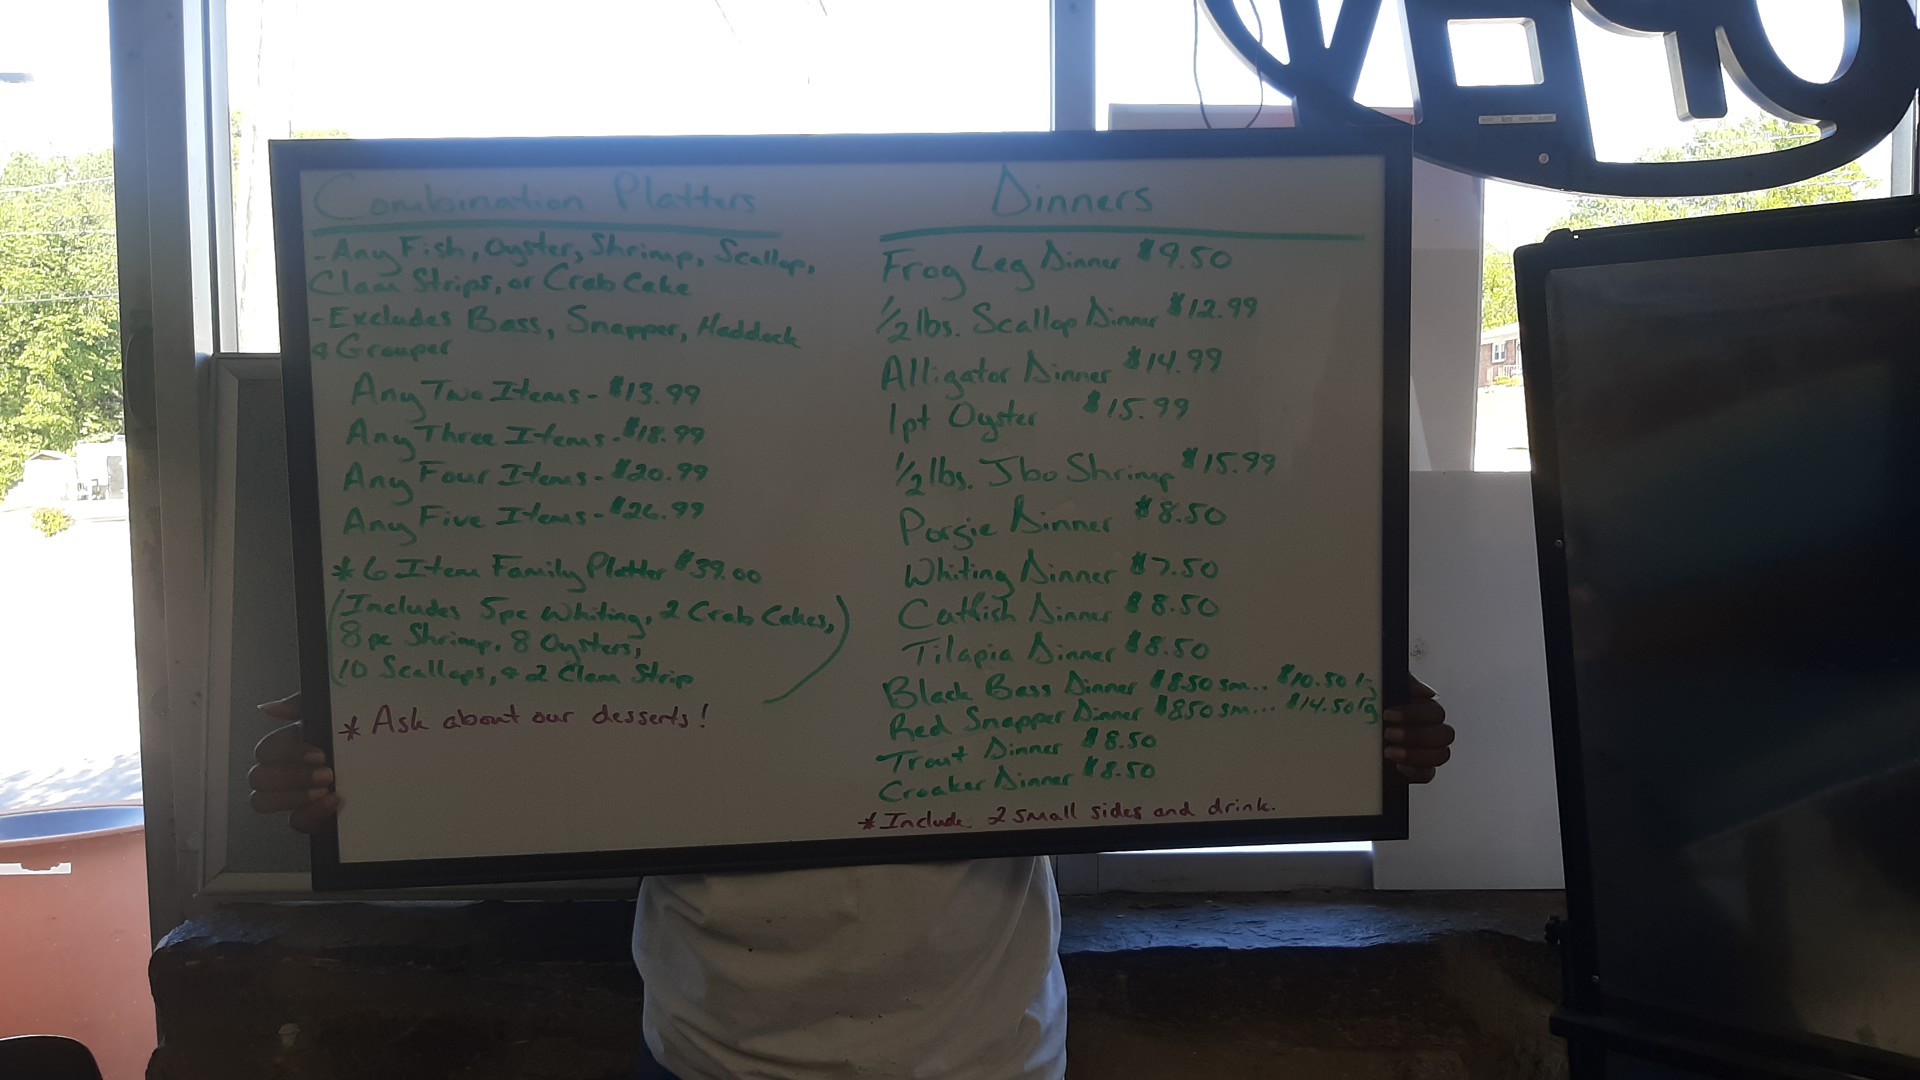 Combination Platters
- Any Fish, Oyster, Shrimp, Scallop,
Clam Strips, or Crab Cake
- Excludes Bass, Snapper, Haddock
& Grouper
Any Two Items - $13.99
Any Three Items - $18.99
Any Four Items - $20.99
Any Five Items - $26.99
* 6 Item Family Platter $39.00
(Includes 5pc Whiting, 2 Crab Cakes,
8 pc Shrimp, 8 Oysters,
10 Scallops, & 2 Clam Strip)
* Ask about our desserts!
Dinners
Frog Leg Dinner $9.50
1/2 lbs. Scallop Dinner $12.99
Alligator Dinner $14.99
1pt Oyster $15.99
1/2 lbs. Jbo Shrimp $15.99
Porgie Dinner $8.50
Whiting Dinner $7.50
Catfish Dinner $8.50
Tilapia Dinner $8.50
Black Bass Dinner $8.50 sm... $10.50 lg
Red Snapper Dinner $8.50 sm... $14.50 lg
Trout Dinner $8.50
Croaker Dinner $8.50
* Include 2 small sides and drink.
OPEN